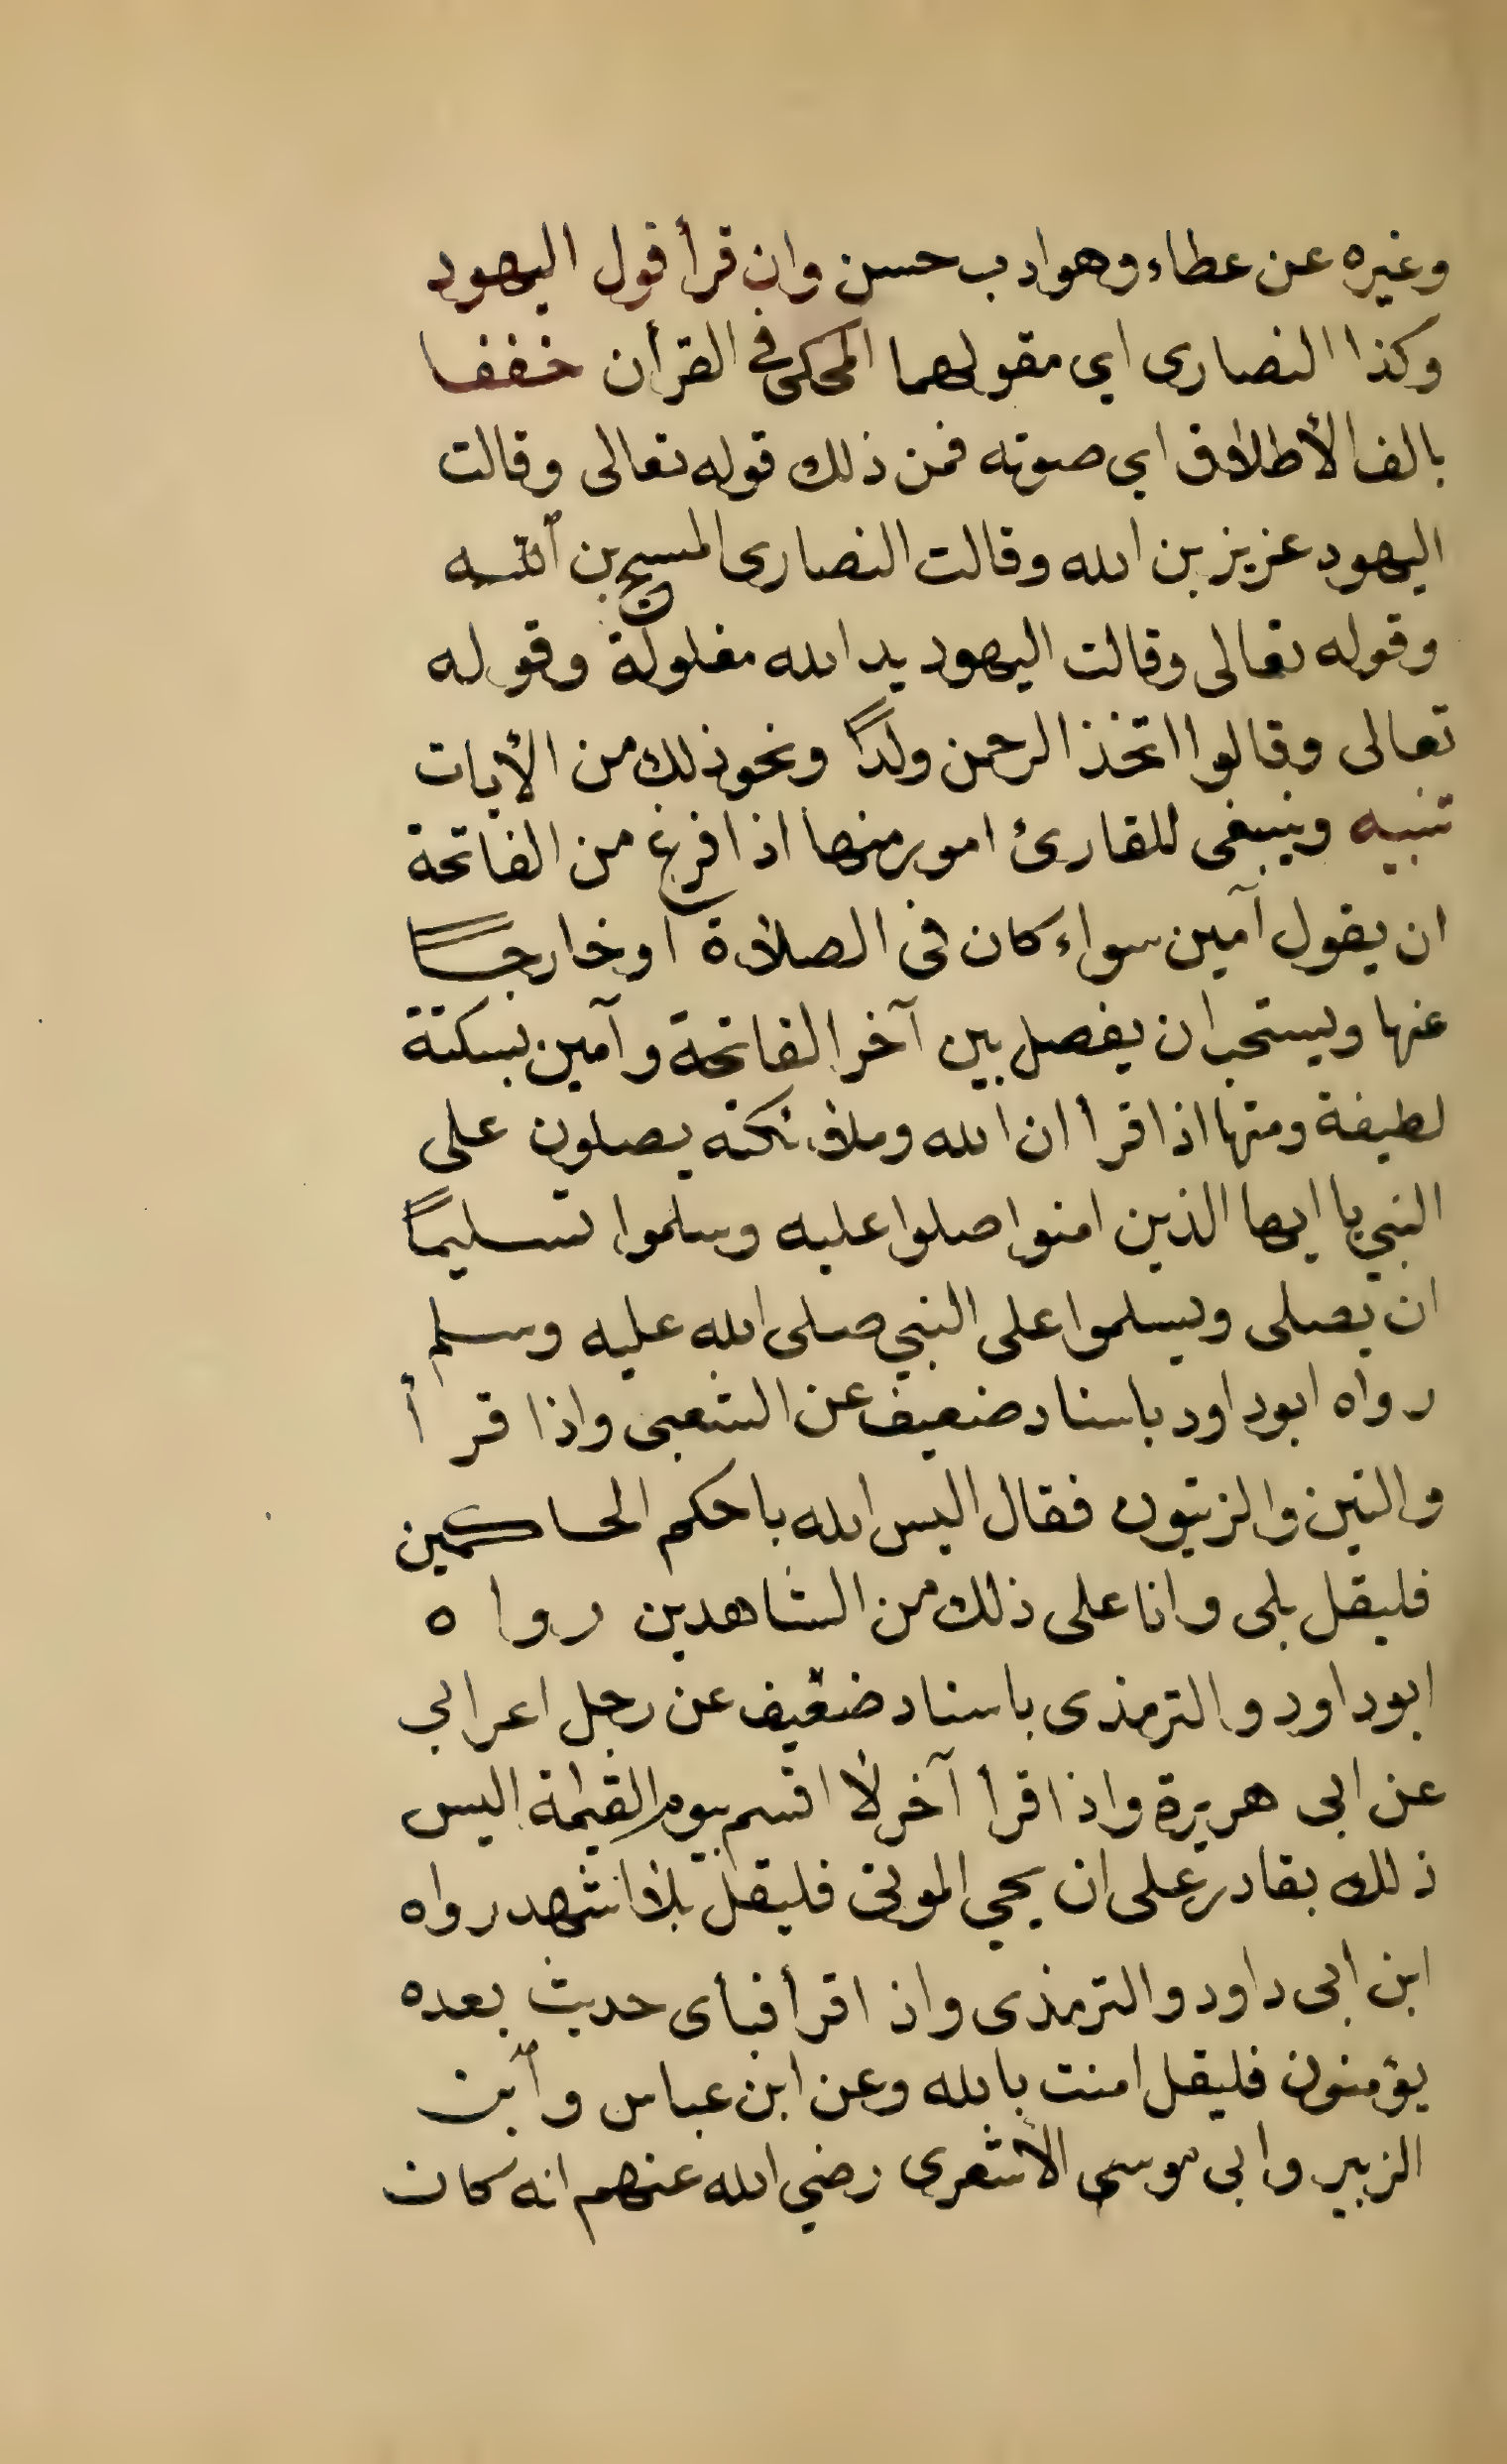 وغيره عن عطاء وهو ادب حسن وان قرأ قول اليهود
وكذا النصارى اي مقولهما المحكي في القرأن خففا
بالف الأطلاق اي صوته فمن ذلك قوله تعالى وقالت
اليهود عزيز بن الله وقالت النصارى المسيح بن الله
وقوله تعالى وقالت اليهود يد الله مغلولة وقوله
تعالى وقالوا اتخذ الرحمن ولدًا ونحو ذلك من الأيات
تنبيه وينبغي للقارئ امور منها اذا فرغ من الفاتحة
ان يقول آمين سواء كان في الصلاة أو خارجًا
عنها ويستحب ان يفصل بين آخر الفاتحة وآمين بسكتة
لطيفة ومنها اذا قرأ ان الله وملائكته يصلون على
النبي يا ايها الذين امنوا صلوا عليه وسلموا تسليمًا
ان يصلى ويسلموا على النبي صلى الله عليه وسلم
رواه ابو داود باسناد ضعيف عن الشعبى واذا قرأ
والتين والزيتون فقال اليس الله باحكم الحاكمين
فليقل بلى وانا على ذلك من الشاهدين رواه
ابو داود والترمذى باسناد ضعيف عن رجل اعرابي
عن ابى هريرة واذا قرأ آخر لا اقسم بيوم القيمة اليس
ذلك بقادر على ان يحي الموتى فليقل بلا اشهد رواه
ابن ابى داود والترمذى واذا قرأ فبأى حديث بعده
يؤمنون فليقل امنت بالله وعن ابن عباس وأبن
الزبير وابى موسى الأشعرى رضي الله عنهم انه كان